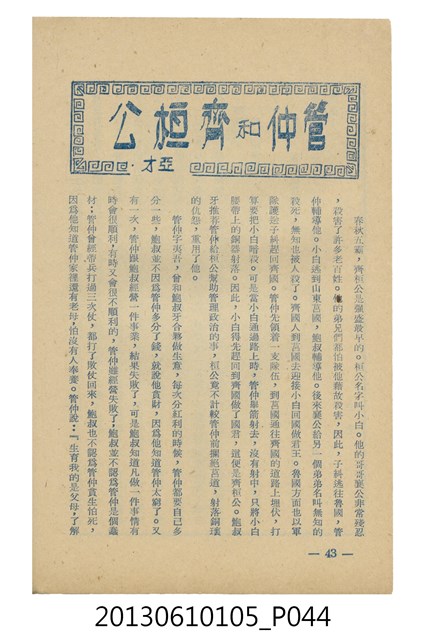 管仲和齊桓公
亞才·
春秋五霸,齊桓公是強盛最早的。桓公名字叫小白。他的哥哥襄公非常殘忍
,殺害了許多老百姓。他的弟兄們都怕被他藉故殺害,因此,子糾逃往魯國,管
仲輔導他。小白逃到山東莒國,鮑叔輔導他。後來襄公給另一個弟弟名叫無知的
殺死,無知也被人殺了。齊國人到莒國去迎接小白回國做君王。魯國方面也以軍
隊護送子糾趕回齊國。管仲先領着一支隊伍,到莒國通往齊國的道路上埋伏,打
算要把小白暗殺。可是當小白通過路上時,管仲舉箭射去,沒有射中,只將小白
腰帶上的銅器射落。因此,小白得先趕回到齊國做了國君,這便是齊桓公。鮑叔
牙推荐管仲給桓公幫助管理政治的事,桓公竟不計較管仲前攔絕莒道,射落銅環
的仇怨,重用了他。
管仲字夷吾,曾和鮑叔牙合夥做生意,每次分紅利的時候,管仲都要自己多
分一些,鮑叔並不因爲管仲多分了錢,就說他貪財,因爲他知道管仲太窮了。又
有一次,管仲跟鮑叔經營一件事業,結果失敗了,可是鮑叔知道凡做一件事情有
時會很順利,有時又會很不順利的,管仲雖經營失敗了,鮑叔並不認爲管仲是個蠢
材;管仲曾經帶兵打過三次仗,都打了敗仗回來,鮑叔也不認爲管仲貪生怕死,
因爲他知道管仲家裡還有老母,怕沒有人奉養。管仲說:『生育我的是父母,了解
— 43 —
20130610105_P044